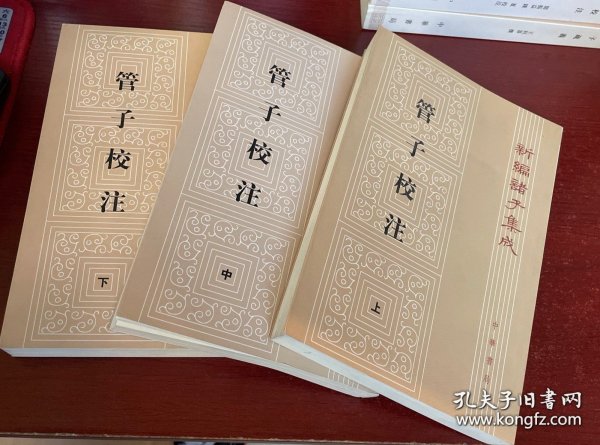 管子校注
下
管子校注
中
管子校注
上
新編諸子集成
中華書局
孔夫子旧書网
www.kongfz.com